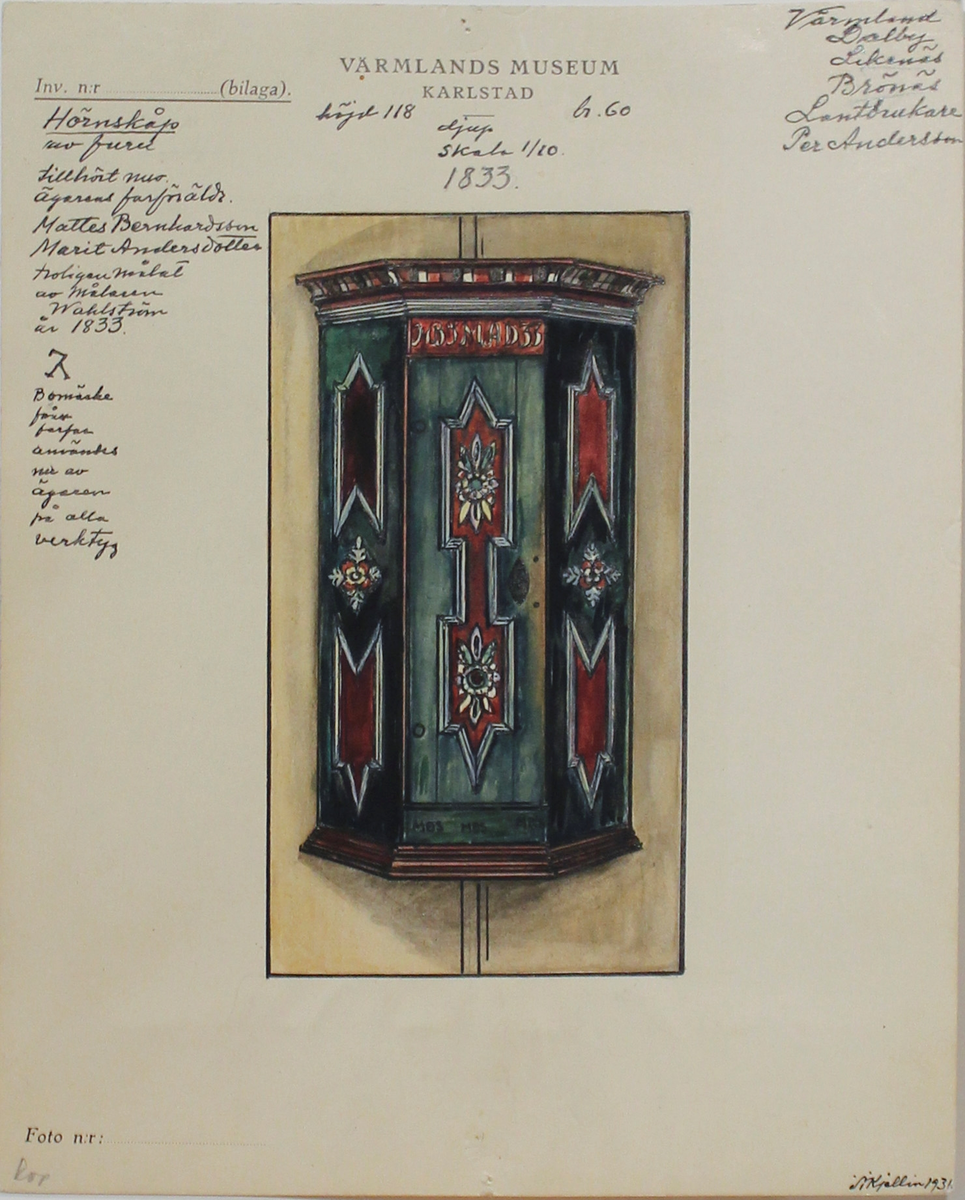 VÄRMLANDS MUSEUM
KARLSTAD
Inv. n:r (bilaga).
Värmland
Dalby
Likenäs
Brönäs
Lantbrukare
Per Andersson
höjd 118 djup br. 60
Skala 1/10.
1833.
Hörnskåp
av furu
tillhört nuv.
ägarens farföräldr.
Mattes Bernhardsson
Marit Andersdotter
troligen målat
av målaren
Wahlström
år 1833.
Bomärke
från
farfar
användes
nu av
ägaren
på alla
verktyg
MBS MBS
Foto n:r:
Kjellin 1931